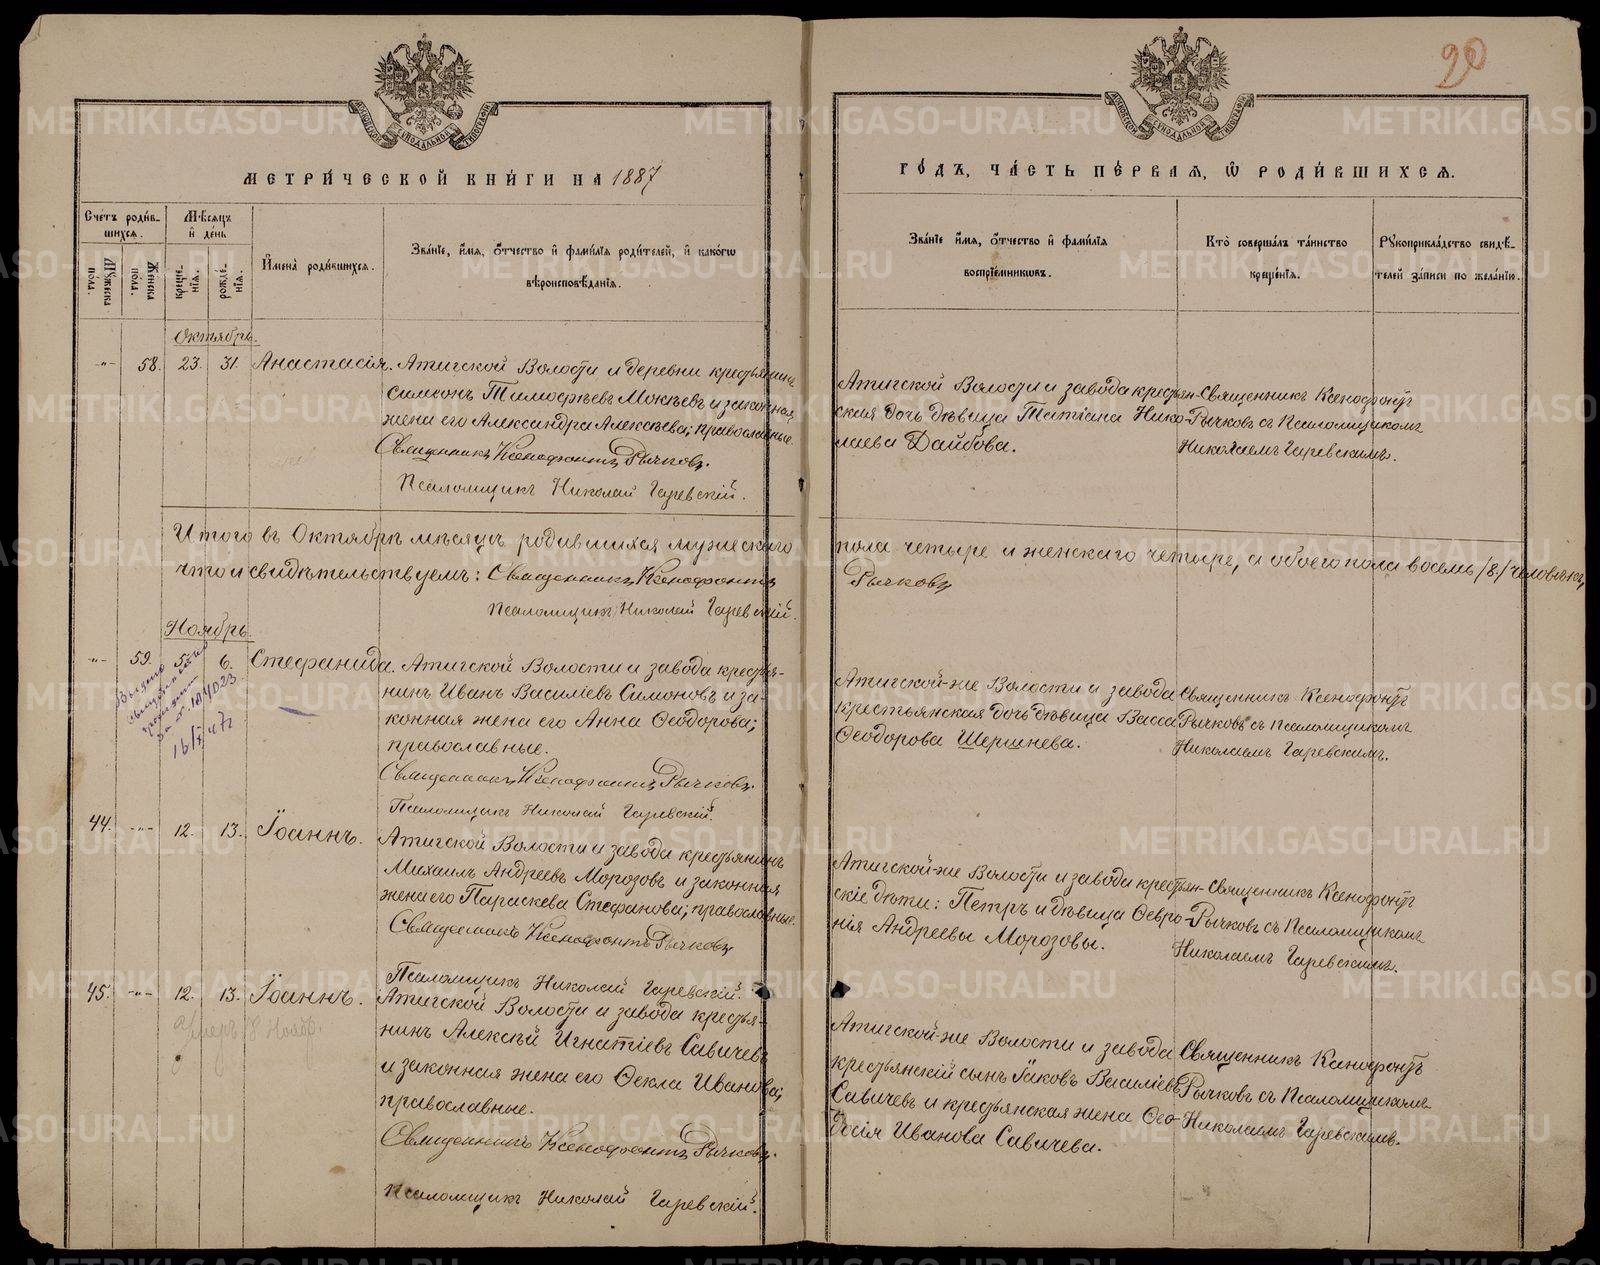 20
МЕТРИ́ЧЕСКОЙ КНИ́ГИ НА 1887
ГО́ДЪ, ЧА́СТЬ ПЕ́РВАЯ, Ѡ РОДИ́ВШИХСЯ.
Сче́тъ роди́вшихся.
Мѣ́сяцъ и де́нь
Имена̀ роди́вшихся.
Зва́нїе, и́мя, ѻ́тчество и фами́лїя роди́телей, и како́гѡ вѣроисповѣ́данїя.
Зва́нїе и́мя, ѻ́тчество и фами́лїя воспрїе́мникѡвъ.
Кто̀ соверша́лъ та́инство креще́нїя.
Рукоприкла́дство свидѣ́телей за́писи по жела́нїю.
Мужеска пола.
Женска пола.
креще́нїя.
рожде́нїя.
Октябрь.
-"- 58. 23. 31. Анастасія. Атигской Волости и деревни крестьянинъ
Симеонъ Тимофѣевъ Мокѣевъ и законная
жена его Александра Алексѣева; православные.
Священникъ Ксенофонтъ Рычковъ.
Псаломщикъ Николай Гаревскій.
Атигской Волости и завода крестьян-
ская дочь дѣвица Татіана Нико-
лаева Дайбова.
Священникъ Ксенофонтъ
Рычковъ съ Псаломщикомъ
Николаемъ Гаревскимъ.
Итого въ Октябрѣ мѣсяцѣ родившихся мужескаго пола четыре и женскаго четыре, а обоего пола восемь /8/ человѣкъ,
что и свидѣтельствуемъ: Священникъ Ксенофонтъ Рычковъ
Псаломщикъ Николай Гаревскій.
Ноябрь.
-"- 59. 5. 6. Стефанида. Атигской Волости и завода крестья-
нинъ Иванъ Василіевъ Симоновъ и за-
конная жена его Анна Ѳеодорова;
православные.
Священникъ Ксенофонтъ Рычковъ.
Псаломщикъ Николай Гаревскій.
Атигской-же Волости и завода
крестьянская дочь дѣвица Васса
Ѳеодорова Шершнева.
Священникъ Ксенофонтъ
Рычковъ съ Псаломщикомъ
Николаемъ Гаревскимъ.
Выдано
44. -"- 12. 13. Іоаннъ. Атигской Волости и завода крестьянинъ
Михаилъ Андреевъ Морозовъ и законная
жена его Параскева Стефанова; православные.
Священникъ Ксенофонтъ Рычковъ
Псаломщикъ Николай Гаревскій.
Атигской-же Волости и завода крестьян-
скіе дѣти: Петръ и дѣвица Февро-
нія Андреевы Морозовы.
Священникъ Ксенофонтъ
Рычковъ съ Псаломщикомъ
Николаемъ Гаревскимъ.
45. -"- 12. 13. Іоаннъ. Атигской Волости и завода крестья-
нинъ Алексѣй Игнатіевъ Савичевъ
и законная жена его Ѳекла Иванова;
православные.
Священникъ Ксенофонтъ Рычковъ.
Псаломщикъ Николай Гаревскій.
Атигской-же Волости и завода
крестьянскій сынъ Іаковъ Василіевъ
Савичевъ и крестьянская жена Ѳео-
досія Иванова Савичева.
Священникъ Ксенофонтъ
Рычковъ съ Псаломщикомъ
Николаемъ Гаревскимъ.
METRIKI.GASO-URAL.RU